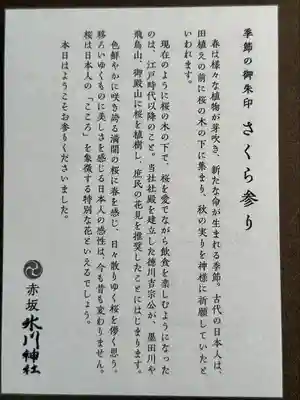 季節の御朱印　さくら参り
春は様々な植物が芽吹き、新たな命が生まれる季節。古代の日本人は、
田植えの前に桜の木の下に集まり、秋の実りを神様に祈願していたと
いわれます。
現在のように桜の木の下で、桜を愛でながら飲食を楽しむようになった
のは、江戸時代以降のこと。当社社殿を建立した徳川吉宗公が、墨田川や
飛鳥山、御殿山に桜を植樹し、庶民の花見を推奨したことにはじまります。
色鮮やかに咲き誇る満開の桜に春を感じ、日々散りゆく桜を儚く思う。
移ろいゆくものに美しさを感じる日本人の感性は、今も昔も変わりません。
桜は日本人の「こころ」を象徴する特別な花といえるでしょう。
本日はようこそお参りくださいました。
赤坂 氷川神社